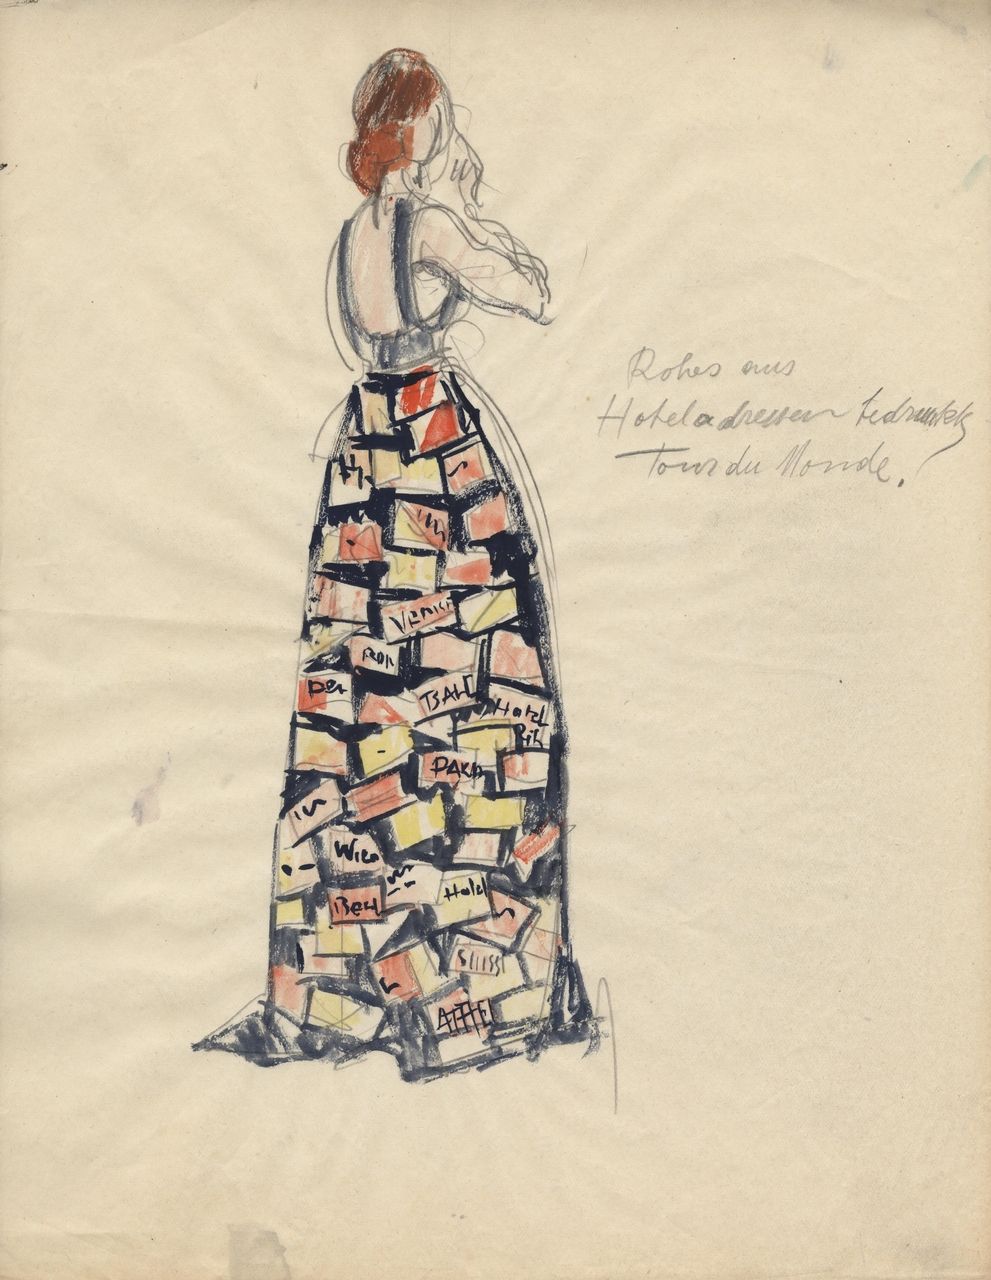 Robes aus
Hoteladressen bedruckt
Tour du Monde!
VENISE
ROM
Der
Hotel
Rit
PARIS
Wien
Berl
Hotel
SUISS